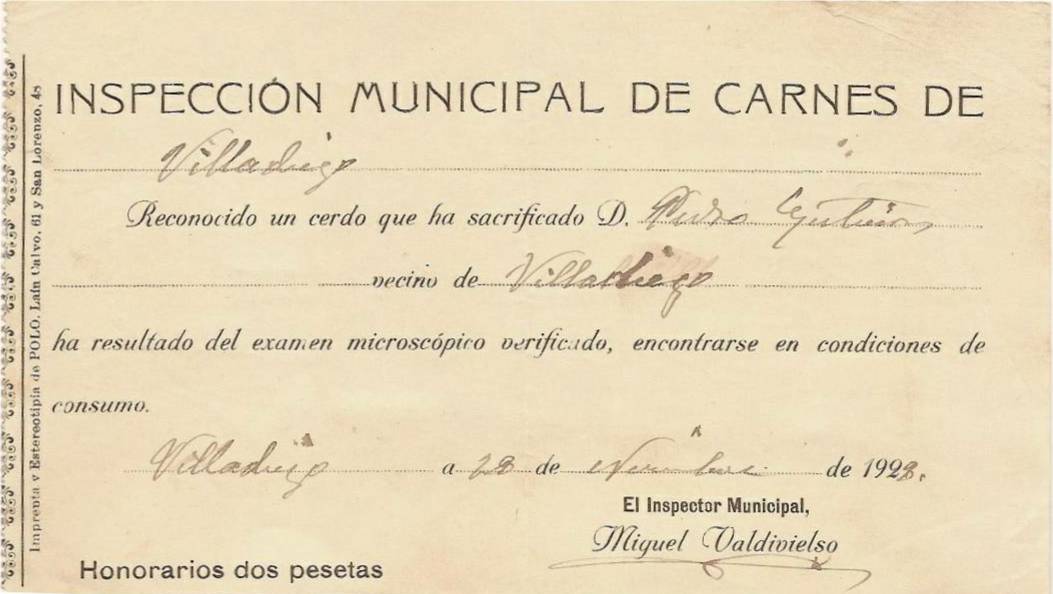 INSPECCIÓN MUNICIPAL DE CARNES DE
Villadiego
Reconocido un cerdo que ha sacrificado D. Pedro Gutiérrez
vecino de Villadiego
ha resultado del examen microscópico verificado, encontrarse en condiciones de
consumo.
Villadiego a 28 de de 192
El Inspector Municipal,
Miguel Valdivielso
Honorarios dos pesetas
Imprenta y Estereotipia de POLO. Laín Calvo, 61 y San Lorenzo, 48